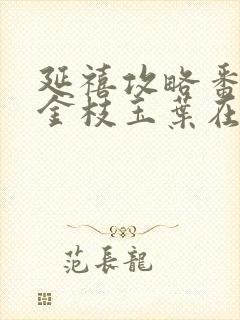 延禧攻略番
金枝玉葉在
范長龍